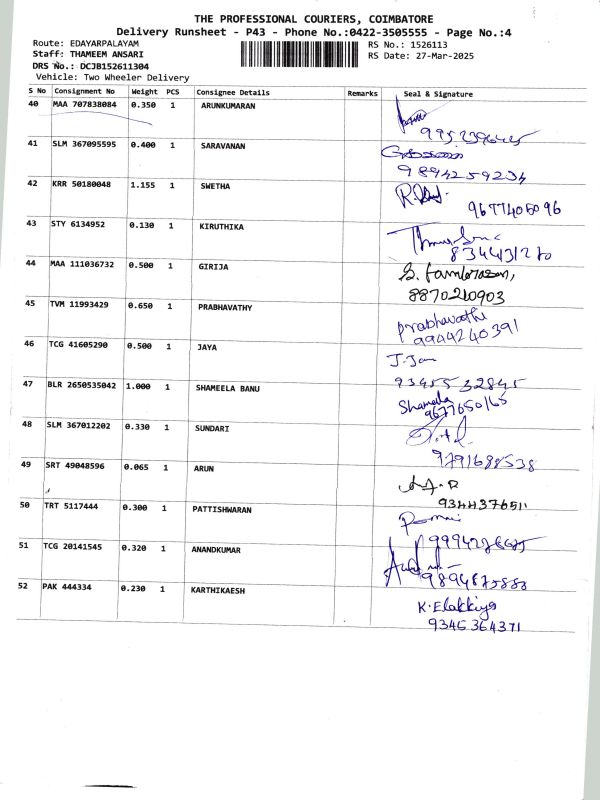 THE PROFESSIONAL COURIERS, COIMBATORE
Delivery Runsheet - P43 - Phone No.:0422-3505555 - Page No.:4
Route: EDAYARPALAYAM
Staff: THAMEEM ANSARI
DRS No.: DCJB152611304
Vehicle: Two Wheeler Delivery
RS No.: 1526113
RS Date: 27-Mar-2025
S No Consignment No Weight PCS Consignee Details Remarks Seal & Signature
40 MAA 707838084 0.350 1 ARUNKUMARAN
41 SLM 367095595 0.400 1 SARAVANAN
9894259234
42 KRR 50180048 1.155 1 SWETHA
9677405096
43 STY 6134952 0.130 1 KIRUTHIKA
44 MAA 111036732 0.500 1 GIRIJA
8870210903
45 TVM 11993429 0.650 1 PRABHAVATHY
Prabhavathi
9944240391
46 TCG 41605290 0.500 1 JAYA
9345532845
47 BLR 2650535042 1.000 1 SHAMEELA BANU
Shameela
9677650165
48 SLM 367012202 0.330 1 SUNDARI
9791688538
49 SRT 49048596 0.065 1 ARUN
9344376511
50 TRT 5117444 0.300 1 PATTISHWARAN
51 TCG 20141545 0.320 1 ANANDKUMAR
9894875888
52 PAK 444334 0.230 1 KARTHIKAESH
K. Elakkiya
9345364371